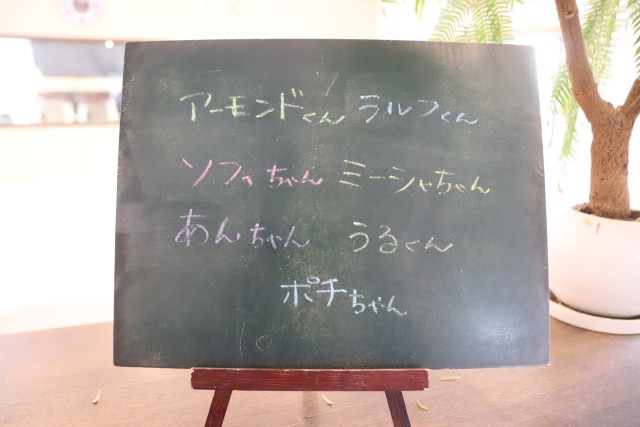 アーモンドくん ラルフくん
ソフィちゃん ミーシャちゃん
あんちゃん うるくん
ポチちゃん